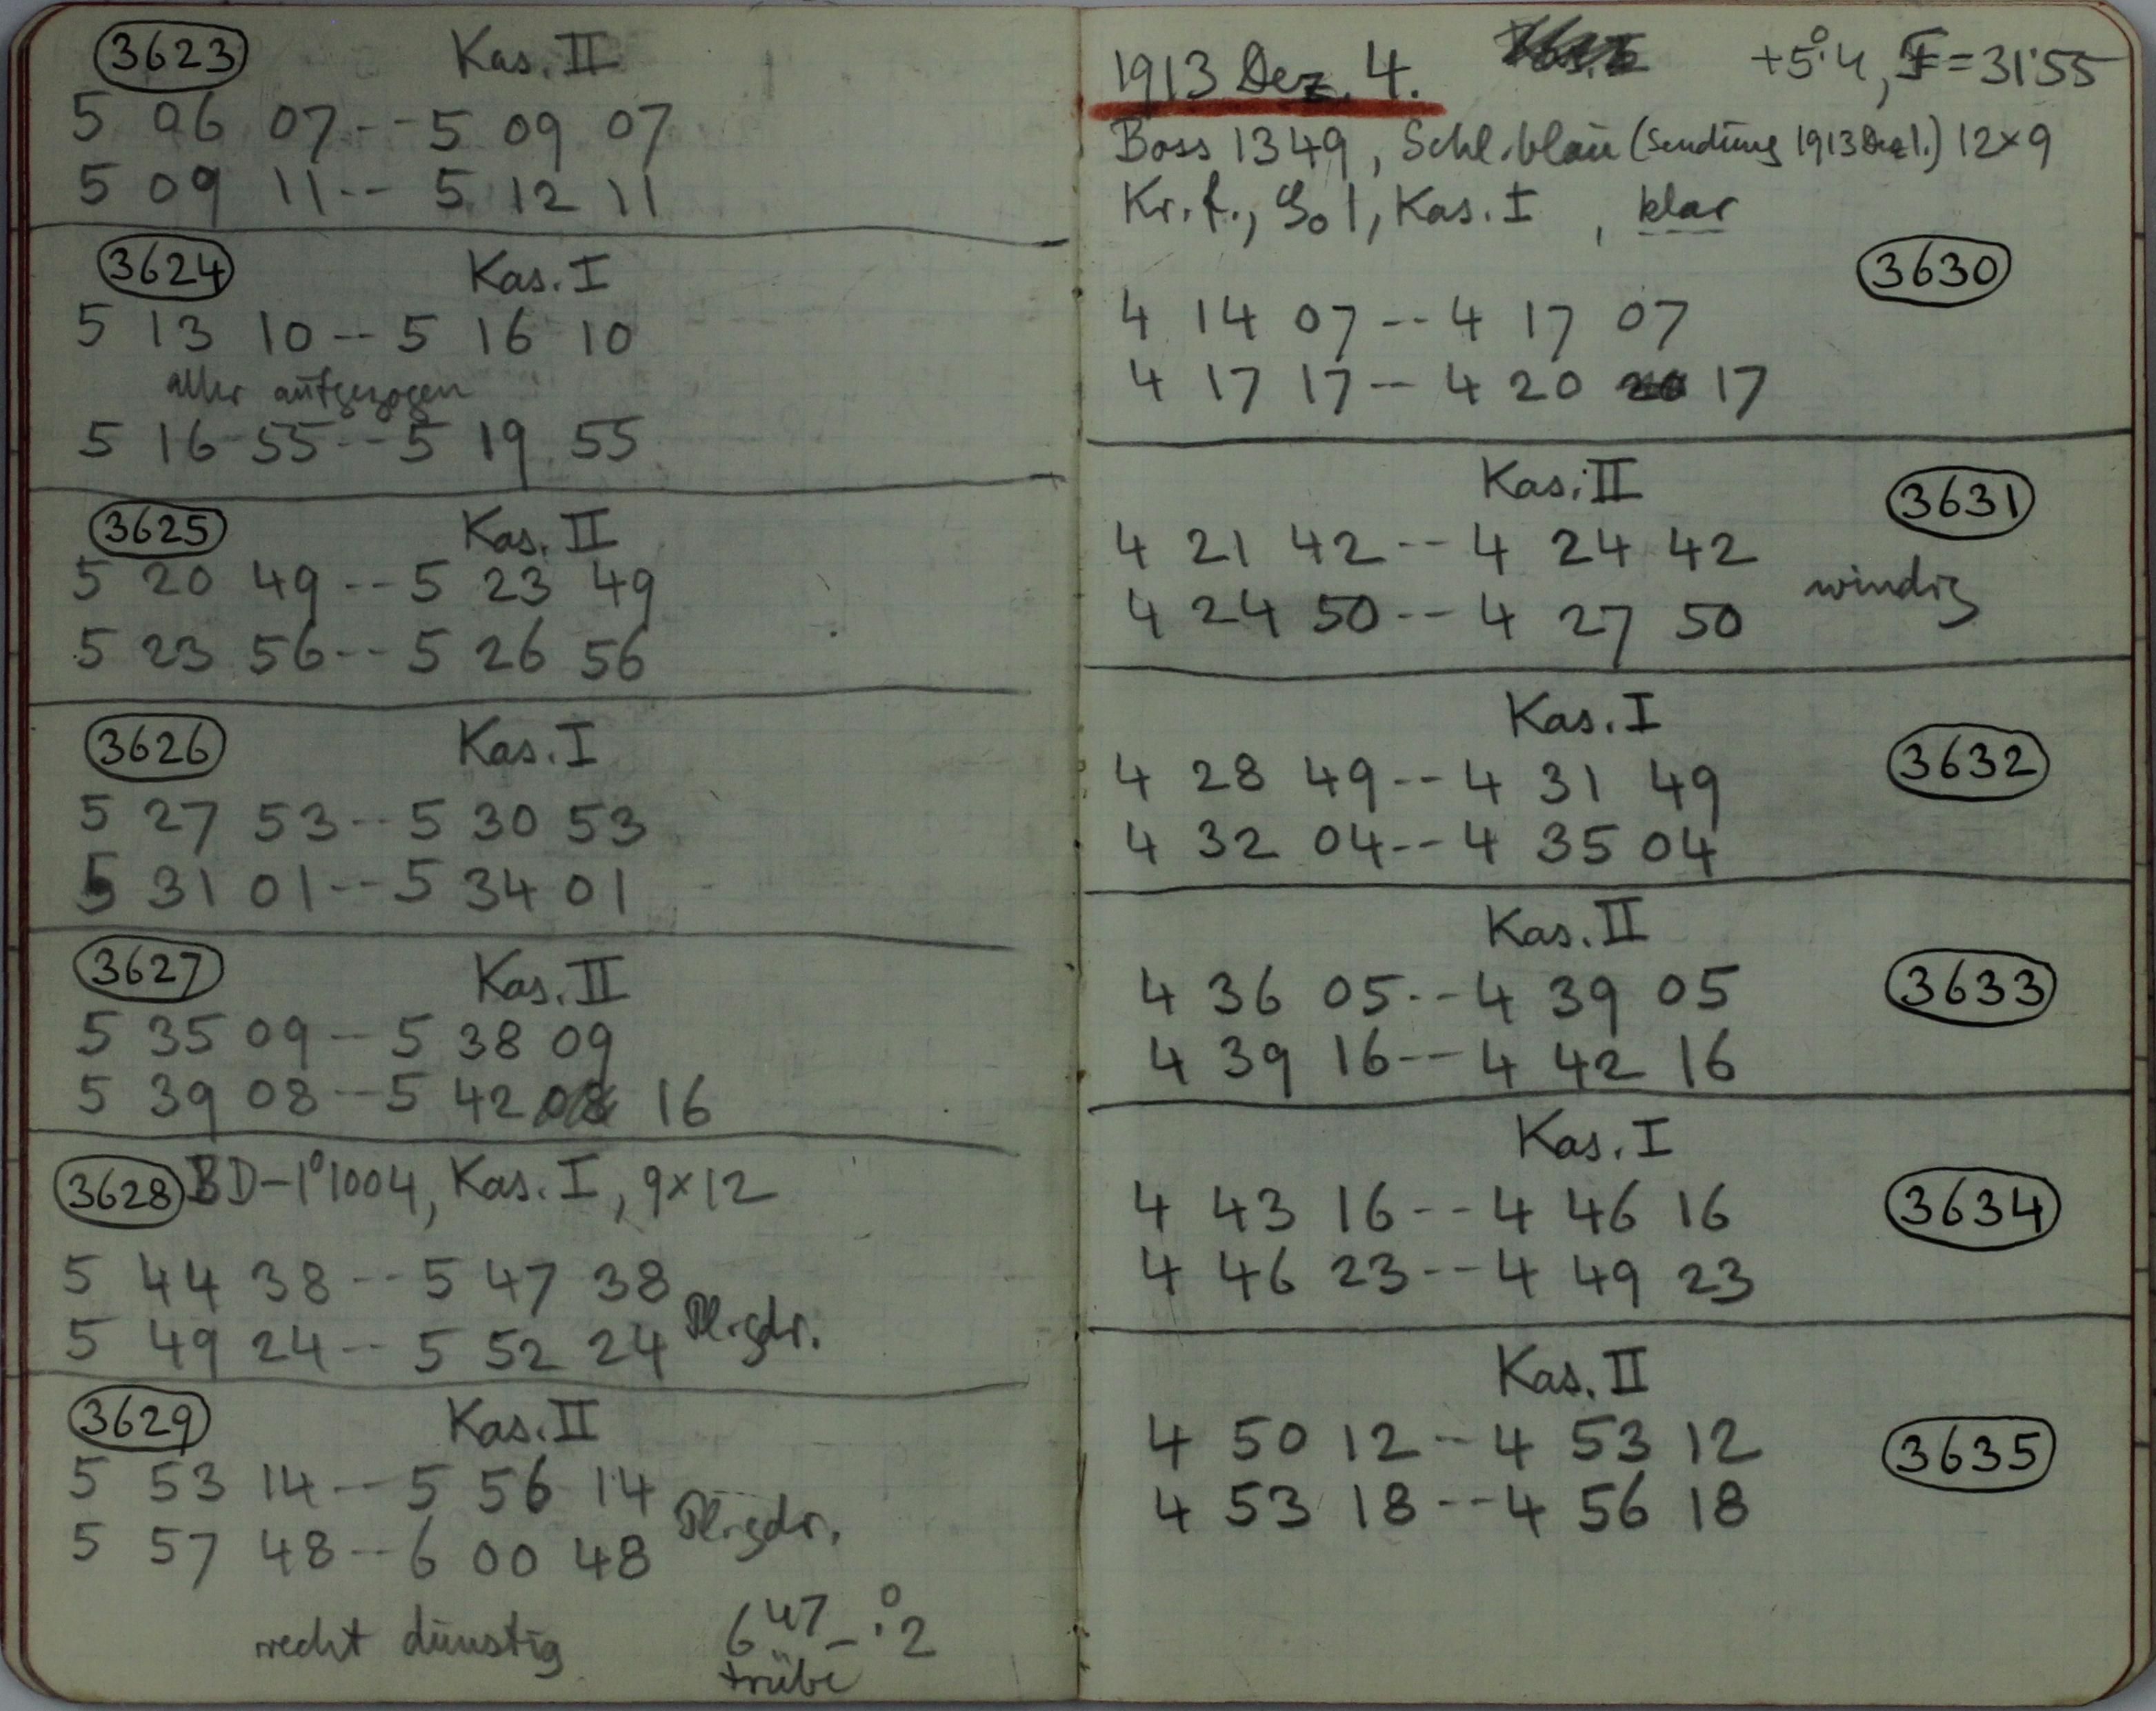 3623 Kas. II
5 06 07 -- 5 09 07
5 09 11 -- 5 12 11
3624 Kas. I
5 13 10 -- 5 16 10
aufgezogen
5 16 55 -- 5 19 55
3625 Kas. II
5 20 49 -- 5 23 49
5 23 56 -- 5 26 56
3626 Kas. I
5 27 53 -- 5 30 53
5 31 01 -- 5 34 01
3627 Kas. II
5 35 09 -- 5 38 09
5 39 08 -- 5 42 08 16
3628 BD-1°1004, Kas. I, 9×12
5 44 38 -- 5 47 38
5 49 24 -- 5 52 24
3629 Kas. II
5 53 14 -- 5 56 14
5 57 48 -- 6 00 48
recht dunstig 6 47 -°.2
trübe
1913 Dez. 4. +5°.4, F=31.55
Boss 1349, Schl. blau (Sendung 1913 Dez 1.) 12×9
Kr. f., Kas. I, klar
3630
4 14 07 -- 4 17 07
4 17 17 -- 4 20 20 17
Kas. II 3631
4 21 42 -- 4 24 42
windig
4 24 50 -- 4 27 50
Kas. I
3632
4 28 49 -- 4 31 49
4 32 04 -- 4 35 04
Kas. II
3633
4 36 05 -- 4 39 05
4 39 16 -- 4 42 16
Kas. I
3634
4 43 16 -- 4 46 16
4 46 23 -- 4 49 23
Kas. II
4 50 12 -- 4 53 12
3635
4 53 18 -- 4 56 18